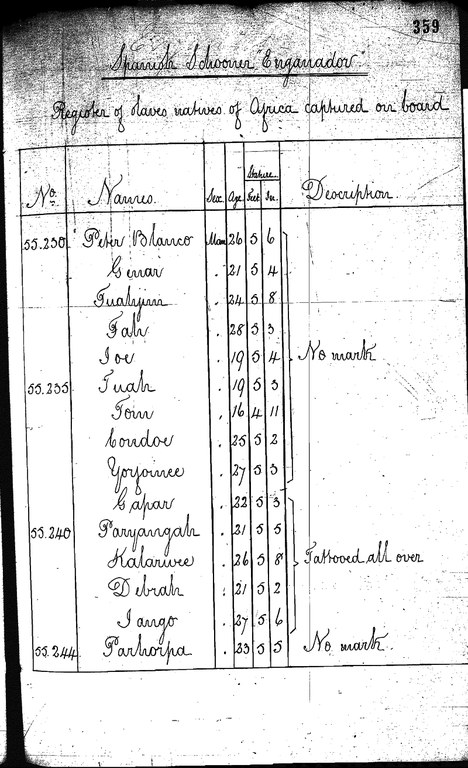 359
Spanish Schooner "Enganador"
Register of slaves natives of Africa captured on board
Stature.
No. Names. Sex. Age Feet In. Description.
55.230 Peter Blanco Man 26 5 6
Genar . 21 5 4
Tuahyim . 24 5 8
Fah . 28 5 3
Joe . 19 5 4 No mark
55.235 Tuah . 19 5 3
Toin . 16 4 11
Condoe . 25 5 2
Yoyoinee . 27 5 3
Gapar . 22 5 3
55.240 Paryangah . 21 5 5
Kalariwee . 26 5 8 Tattooed all over
Debrah . 21 5 2
Jango . 27 5 6
55.244 Parhorpa . 23 5 5 No mark.